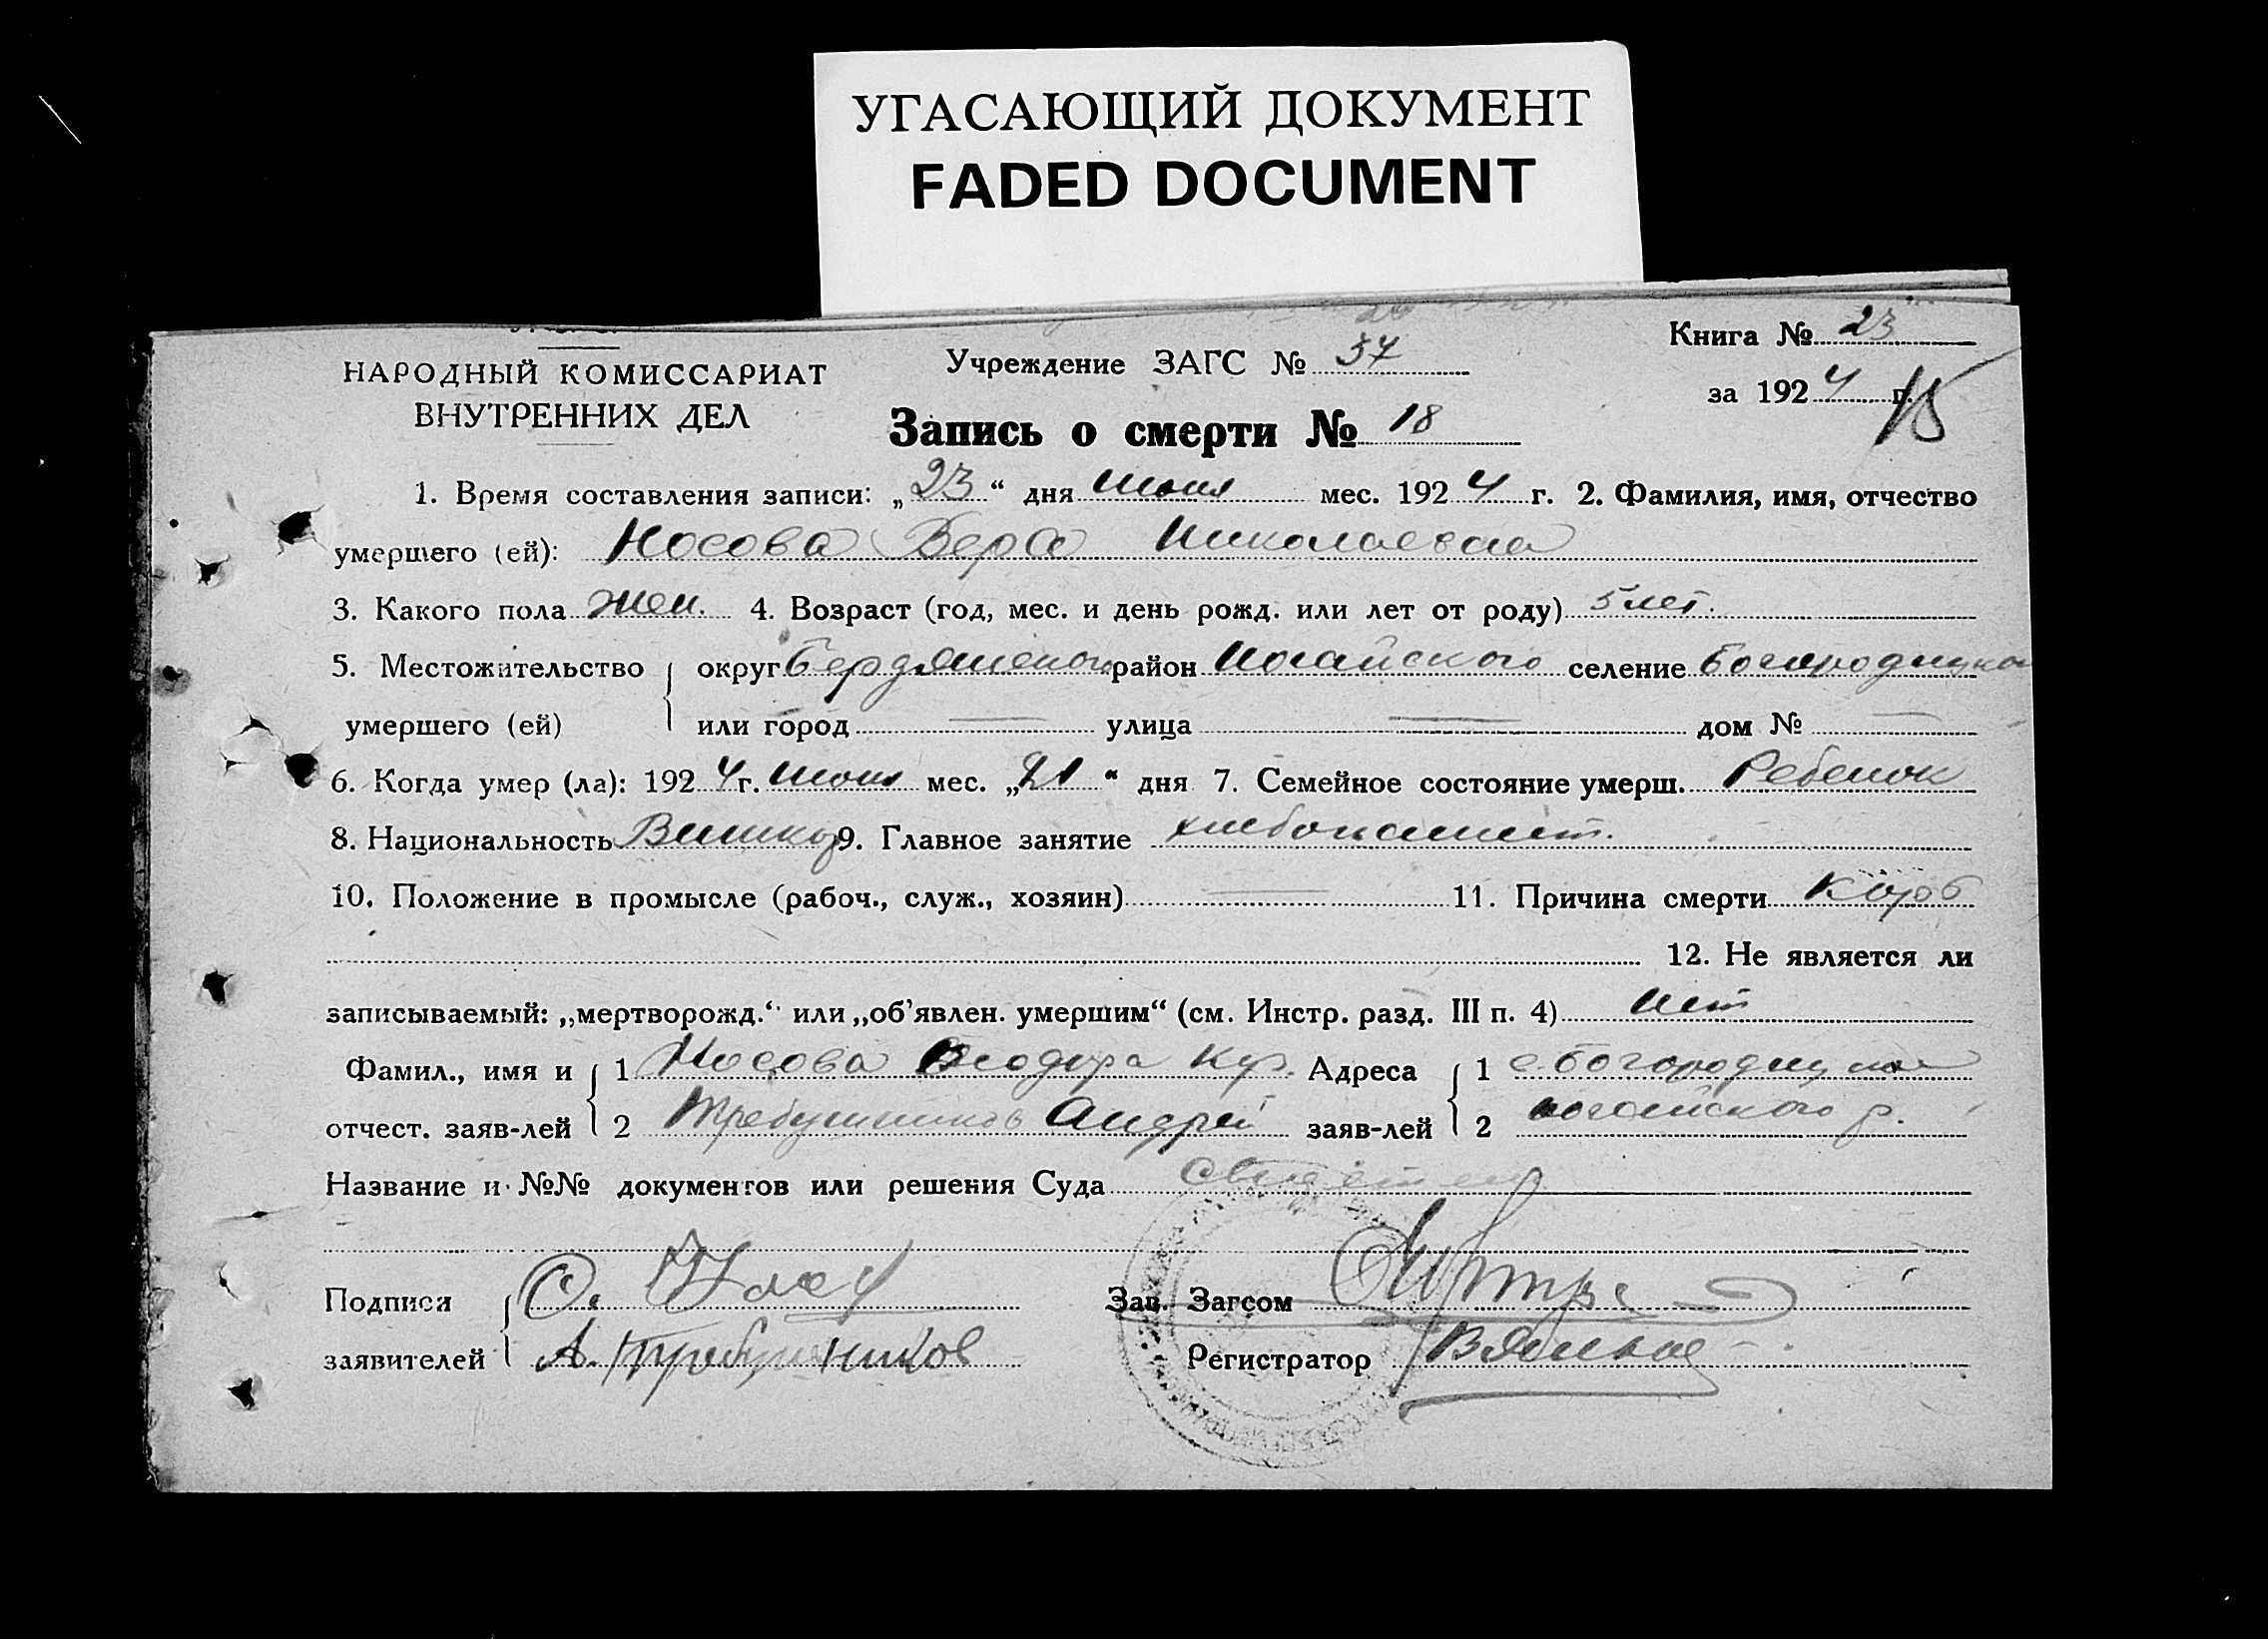 УГАСАЮЩИЙ ДОКУМЕНТ
FADED DOCUMENT
Книга № 23
НАРОДНЫЙ КОМИССАРИАТ
ВНУТРЕННИХ ДЕЛ
Учреждение ЗАГС № 37
за 1924 г. 15
Запись о смерти № 18
1. Время составления записи: „23“ дня Июня мес. 1924 г. 2. Фамилия, имя, отчество
умершего (ей): Носова Вера Николаевна
3. Какого пола жен. 4. Возраст (год, мес. и день рожд. или лет от роду) 5 лет.
5. Местожительство округ Бердянского район Ногайского селение Богородицкое
умершего (ей) или город — улица — дом № —
6. Когда умер (ла): 1924 г. Июня мес. „21“ дня 7. Семейное состояние умерш. Ребенок
8. Национальность 9. Главное занятие хлебопашест.
10. Положение в промысле (рабоч., служ., хозяин) — 11. Причина смерти
12. Не является ли
записываемый: „мертворожд.“ или „об’явлен. умершим“ (см. Инстр. разд. III п. 4) нет
Фамил., имя и 1 Носова Феодора Адреса 1 с. Богородицкое
отчест. заяв-лей 2 Требушников Андрей заяв-лей 2 Ногайского р.
Название и №№ документов или решения Суда
Подписи Зав. Загсом
заявителей А. Требушников Регистратор